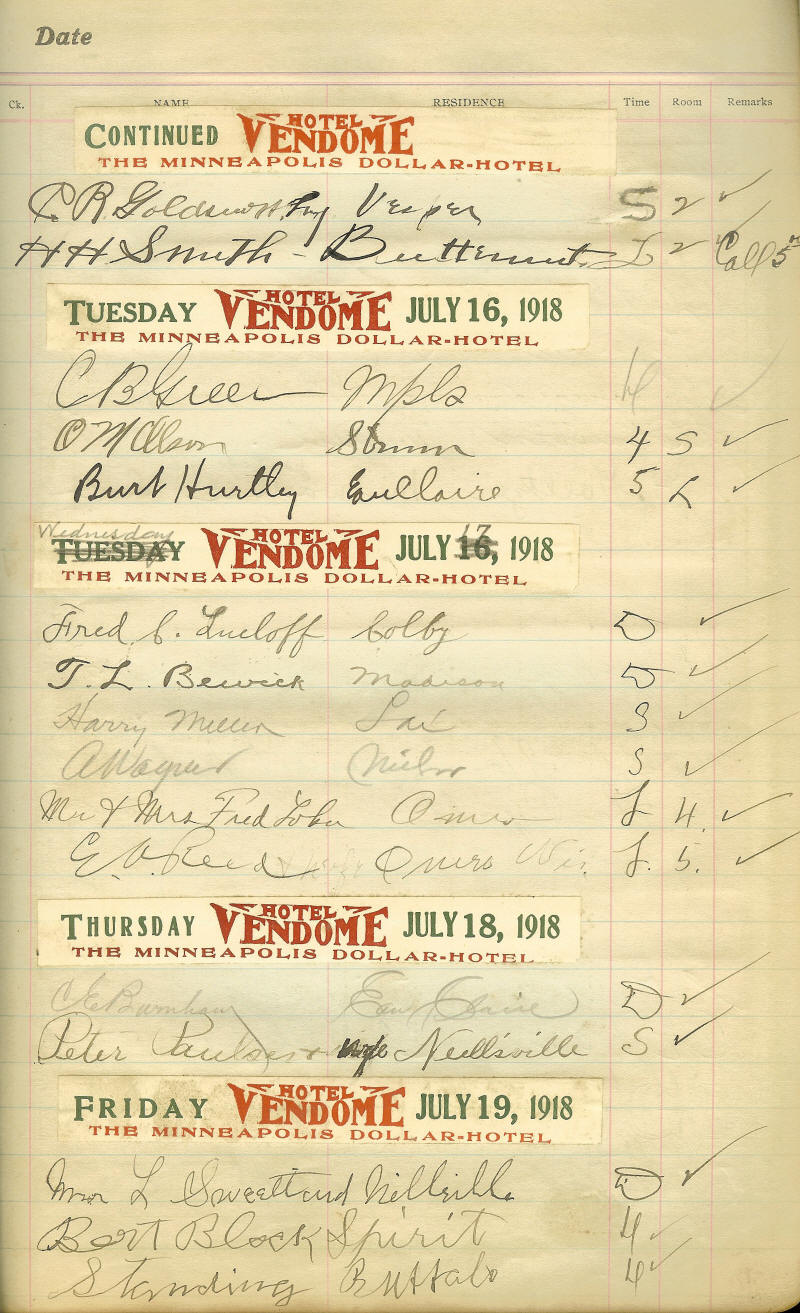 Date
Ck. NAME RESIDENCE Time Room Remarks
CONTINUED HOTEL VENDOME
THE MINNEAPOLIS DOLLAR-HOTEL
C. R. Goldsworthy Vesper S 2 ✓
H H Smith - Butternut L 2 ✓ Call 5
TUESDAY HOTEL VENDOME JULY 16, 1918
THE MINNEAPOLIS DOLLAR-HOTEL
C B Green Mpls ✓
O M Olson Strum 4 S ✓
Burt Hurtley Eau Claire 5 L ✓
Wednesday 17
TUESDAY HOTEL VENDOME JULY 16, 1918
THE MINNEAPOLIS DOLLAR-HOTEL
Fred C. Colby D ✓
T. L. Bewick Madison D ✓
Harry Miller S ✓
A Wagner S ✓
Mr & Mrs Fred Omro L 4. ✓
E. V. Reed & wife Omro Wis. L. 5. ✓
THURSDAY HOTEL VENDOME JULY 18, 1918
THE MINNEAPOLIS DOLLAR-HOTEL
C E Burnham Eau Claire D ✓
Peter Paulsen + wife Neillsville S ✓
FRIDAY HOTEL VENDOME JULY 19, 1918
THE MINNEAPOLIS DOLLAR-HOTEL
L Sweetland Neillsville D ✓
Bert Block Spirit 4 ✓
Standing Buffalo 4 ✓